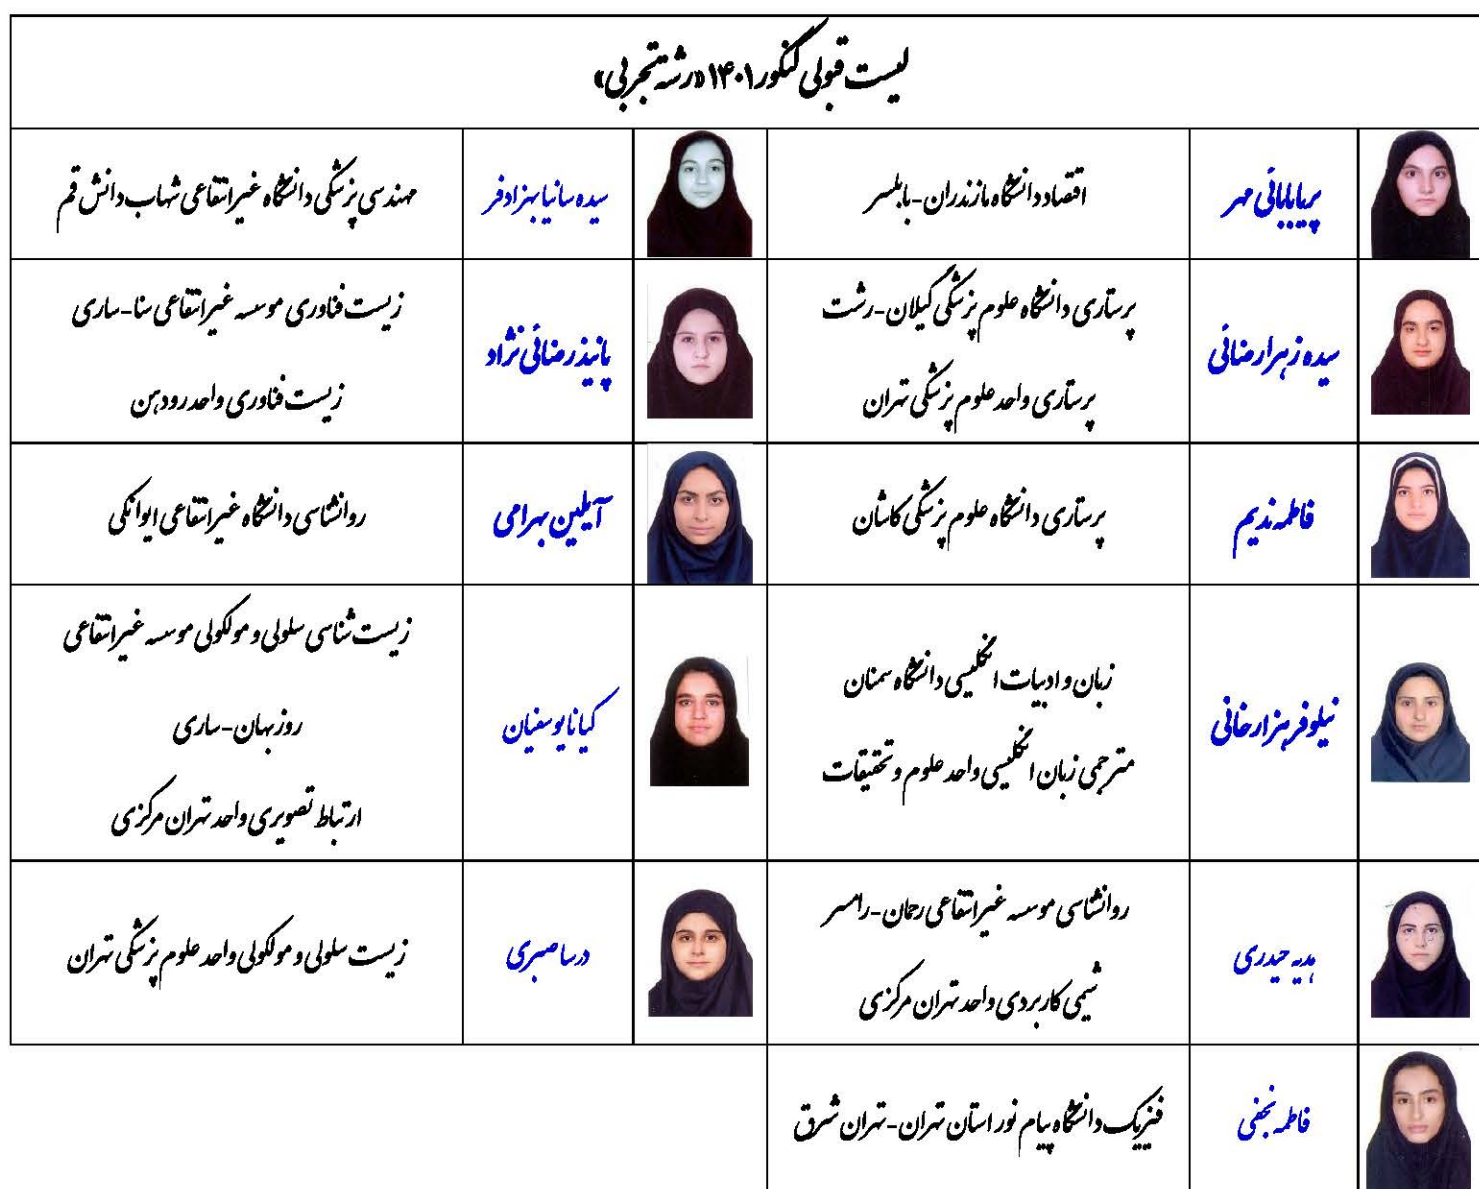 لیست قبولی کنکور ۱۴۰۱ «رشته تجربی»
پریا بابائی مهر
اقتصاد دانشگاه مازندران-بابلسر
سیده سانیا بهزادفر
مهندسی پزشکی دانشگاه غیرانتفاعی شهاب دانش قم
سیده زهرا رضائی
پرستاری دانشگاه علوم پزشکی گیلان-رشت
پرستاری واحد علوم پزشکی تهران
پانیذ رضائی نژاد
زیست فناوری موسسه غیرانتفاعی سنا-ساری
زیست فناوری واحد رودهن
فاطمه ندیم
پرستاری دانشگاه علوم پزشکی کاشان
آیلین بهرامی
روانشناسی دانشگاه غیرانتفاعی ایوانکی
نیلوفر هزارخانی
زبان و ادبیات انگلیسی دانشگاه سمنان
مترجمی زبان انگلیسی واحد علوم و تحقیقات
کیانا یوسفیان
زیست شناسی سلولی و مولکولی موسسه غیرانتفاعی
روزبهان-ساری
ارتباط تصویری واحد تهران مرکزی
هدیه حیدری
روانشناسی موسسه غیرانتفاعی رحمان-رامسر
شیمی کاربردی واحد تهران مرکزی
درسا صبری
زیست سلولی و مولکولی واحد علوم پزشکی تهران
فاطمه نجفی
فیزیک دانشگاه پیام نور استان تهران-تهران شرق